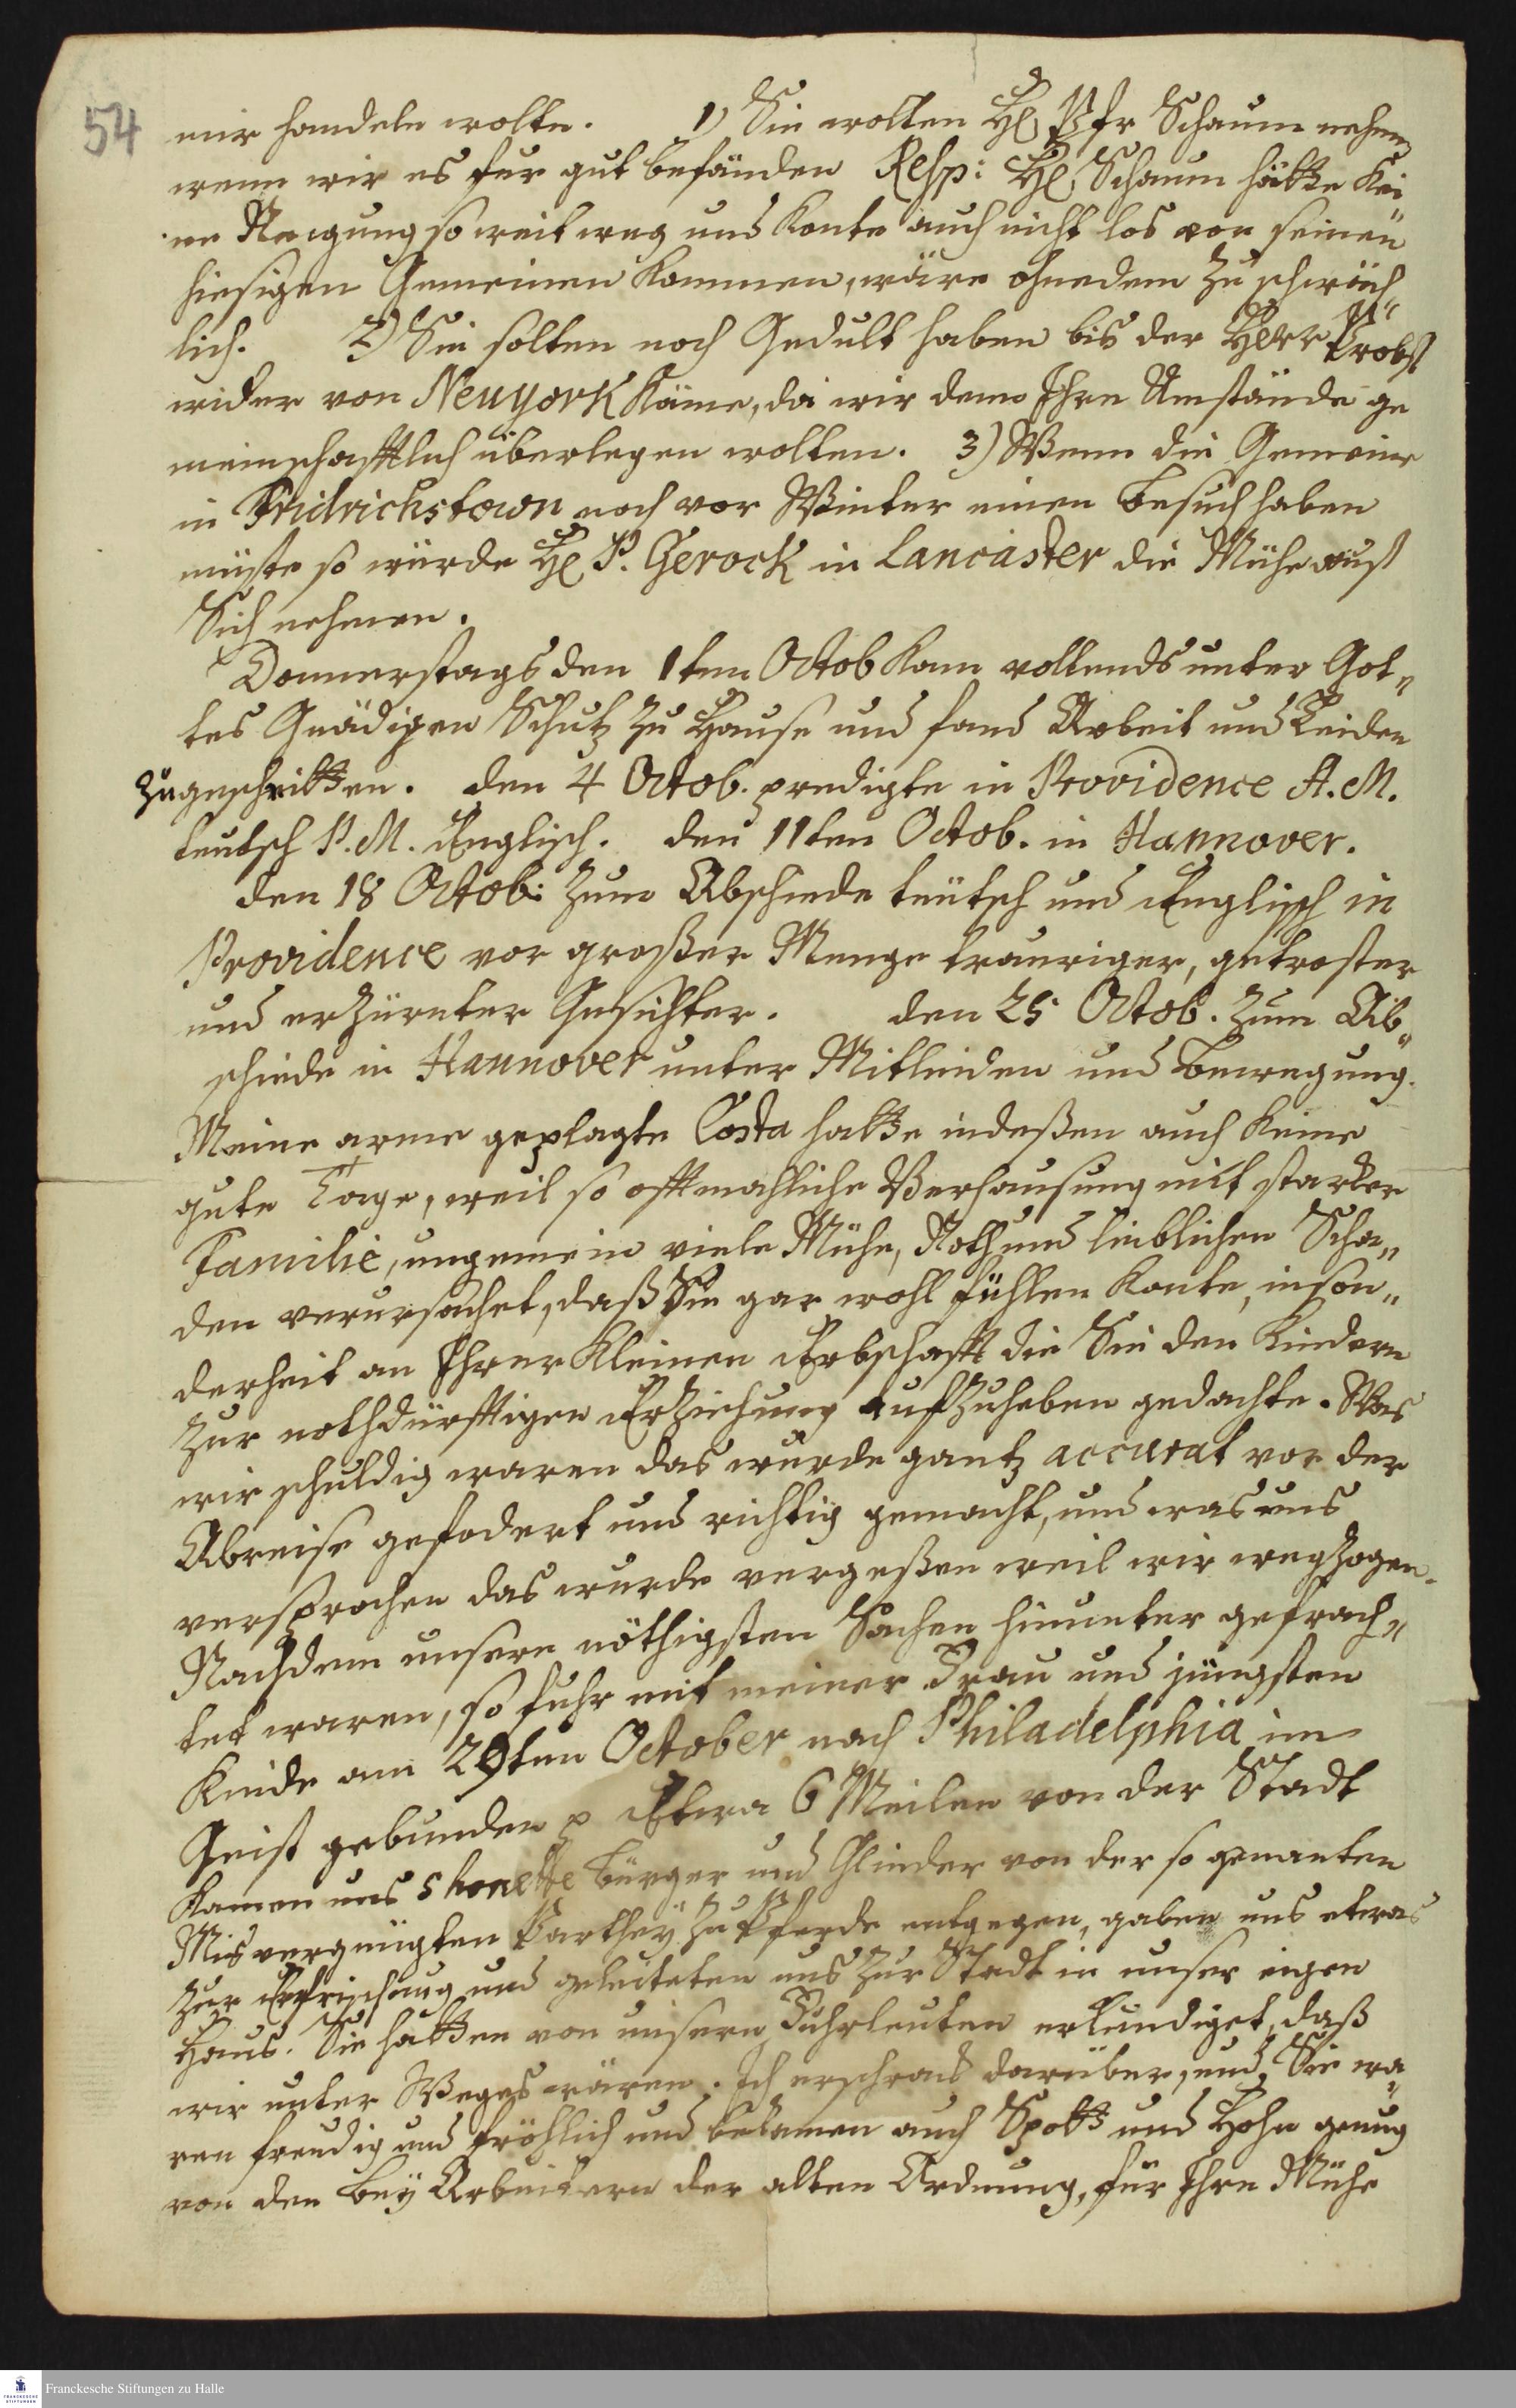 54
mir handeln wolte. 1) Sie wolten H. Pfr Schaum nehmen
wenn wir es fur gut befänden Resp: H. Schaum hätte Kei
ne Neigung so weit weg und Konte auch nicht los von seinen
hiesigen Gemeinen Kommen, wäre ohnedem zu schwäch
lich. 2) Sie solten noch Gedult haben bis der Herr Probst
wider von Neuyork Käme, da wir denn Ihre Umstände ge
meinschafftlich überlegen wolten. 3) Wenn die Gemeine
in Fridrichstown noch vor Winter einen Besuch haben
müste so würde H. P. Gerock in Lancaster die Mühe auf
Sich nehmen.
Donnerstags den 1ten Octob Kam vollends unter Got„
tes Gnädigen Schutz zu Hause und fand Arbeit und Leiden
zugeschnitten. den 4 Octob. predigte in Providence A. M.
teutsch P. M. Englisch. den 11ten Octob. in Hannover.
den 18 Octob: zum Abschiede teutsch und Englisch in
Providence vor großer Menge trauriger, getroster
und erzürnter Gesichter. den 25 Octob. zum Ab„
schiede in Hannover unter Mitleiden und Bewegung.
Meine arme geplagte Costa hatte indeßen auch Keine
gute Tage, weil so offtmahliche Verhausung mit starker
Familie, ungemein viele Mühe, Noth und leiblichen Scha„
den verursachet, daß Sie gar wohl fühlen Konte, inson„
derheit an Ihrer Kleinen Erbschafft die Sie den Kindern
zur nothdürfftigen Erziehung aufzuheben gedachte. Was
wir schuldig waren das wurde gantz accurat vor der
Abreise gefodert und richtig gemacht, und was uns
versprochen das wurde vergeßen weil wir wegzogen.
Nachdem unsere nöthigsten Sachen hinunter gefrach„
tet waren, so fuhr mit meiner Frau und jüngsten
Kinde am 29ten October nach Philadelphia im
Geist gebunden p Etwa 6 Meilen von der Stadt
Kamen uns 5 honette Bürger und Glieder von der so genanten
Misvergnügten Parthey zu Pferde entgegen, gaben uns etwas
zur Erfrischung und geleiteten uns zur Stadt in unser eigen
Haus. Sie hatten von unsern Fuhrleuten erkundiget, daß
wir unter Weges wären. Ich erschrack darüber, und Sie wa„
ren freudig und fröhlich und bekamen auch Spott und Hohn genug
von den Bey Arbeitern der alten Ordnung, für Ihre Mühe
Franckesche Stiftungen zu Halle